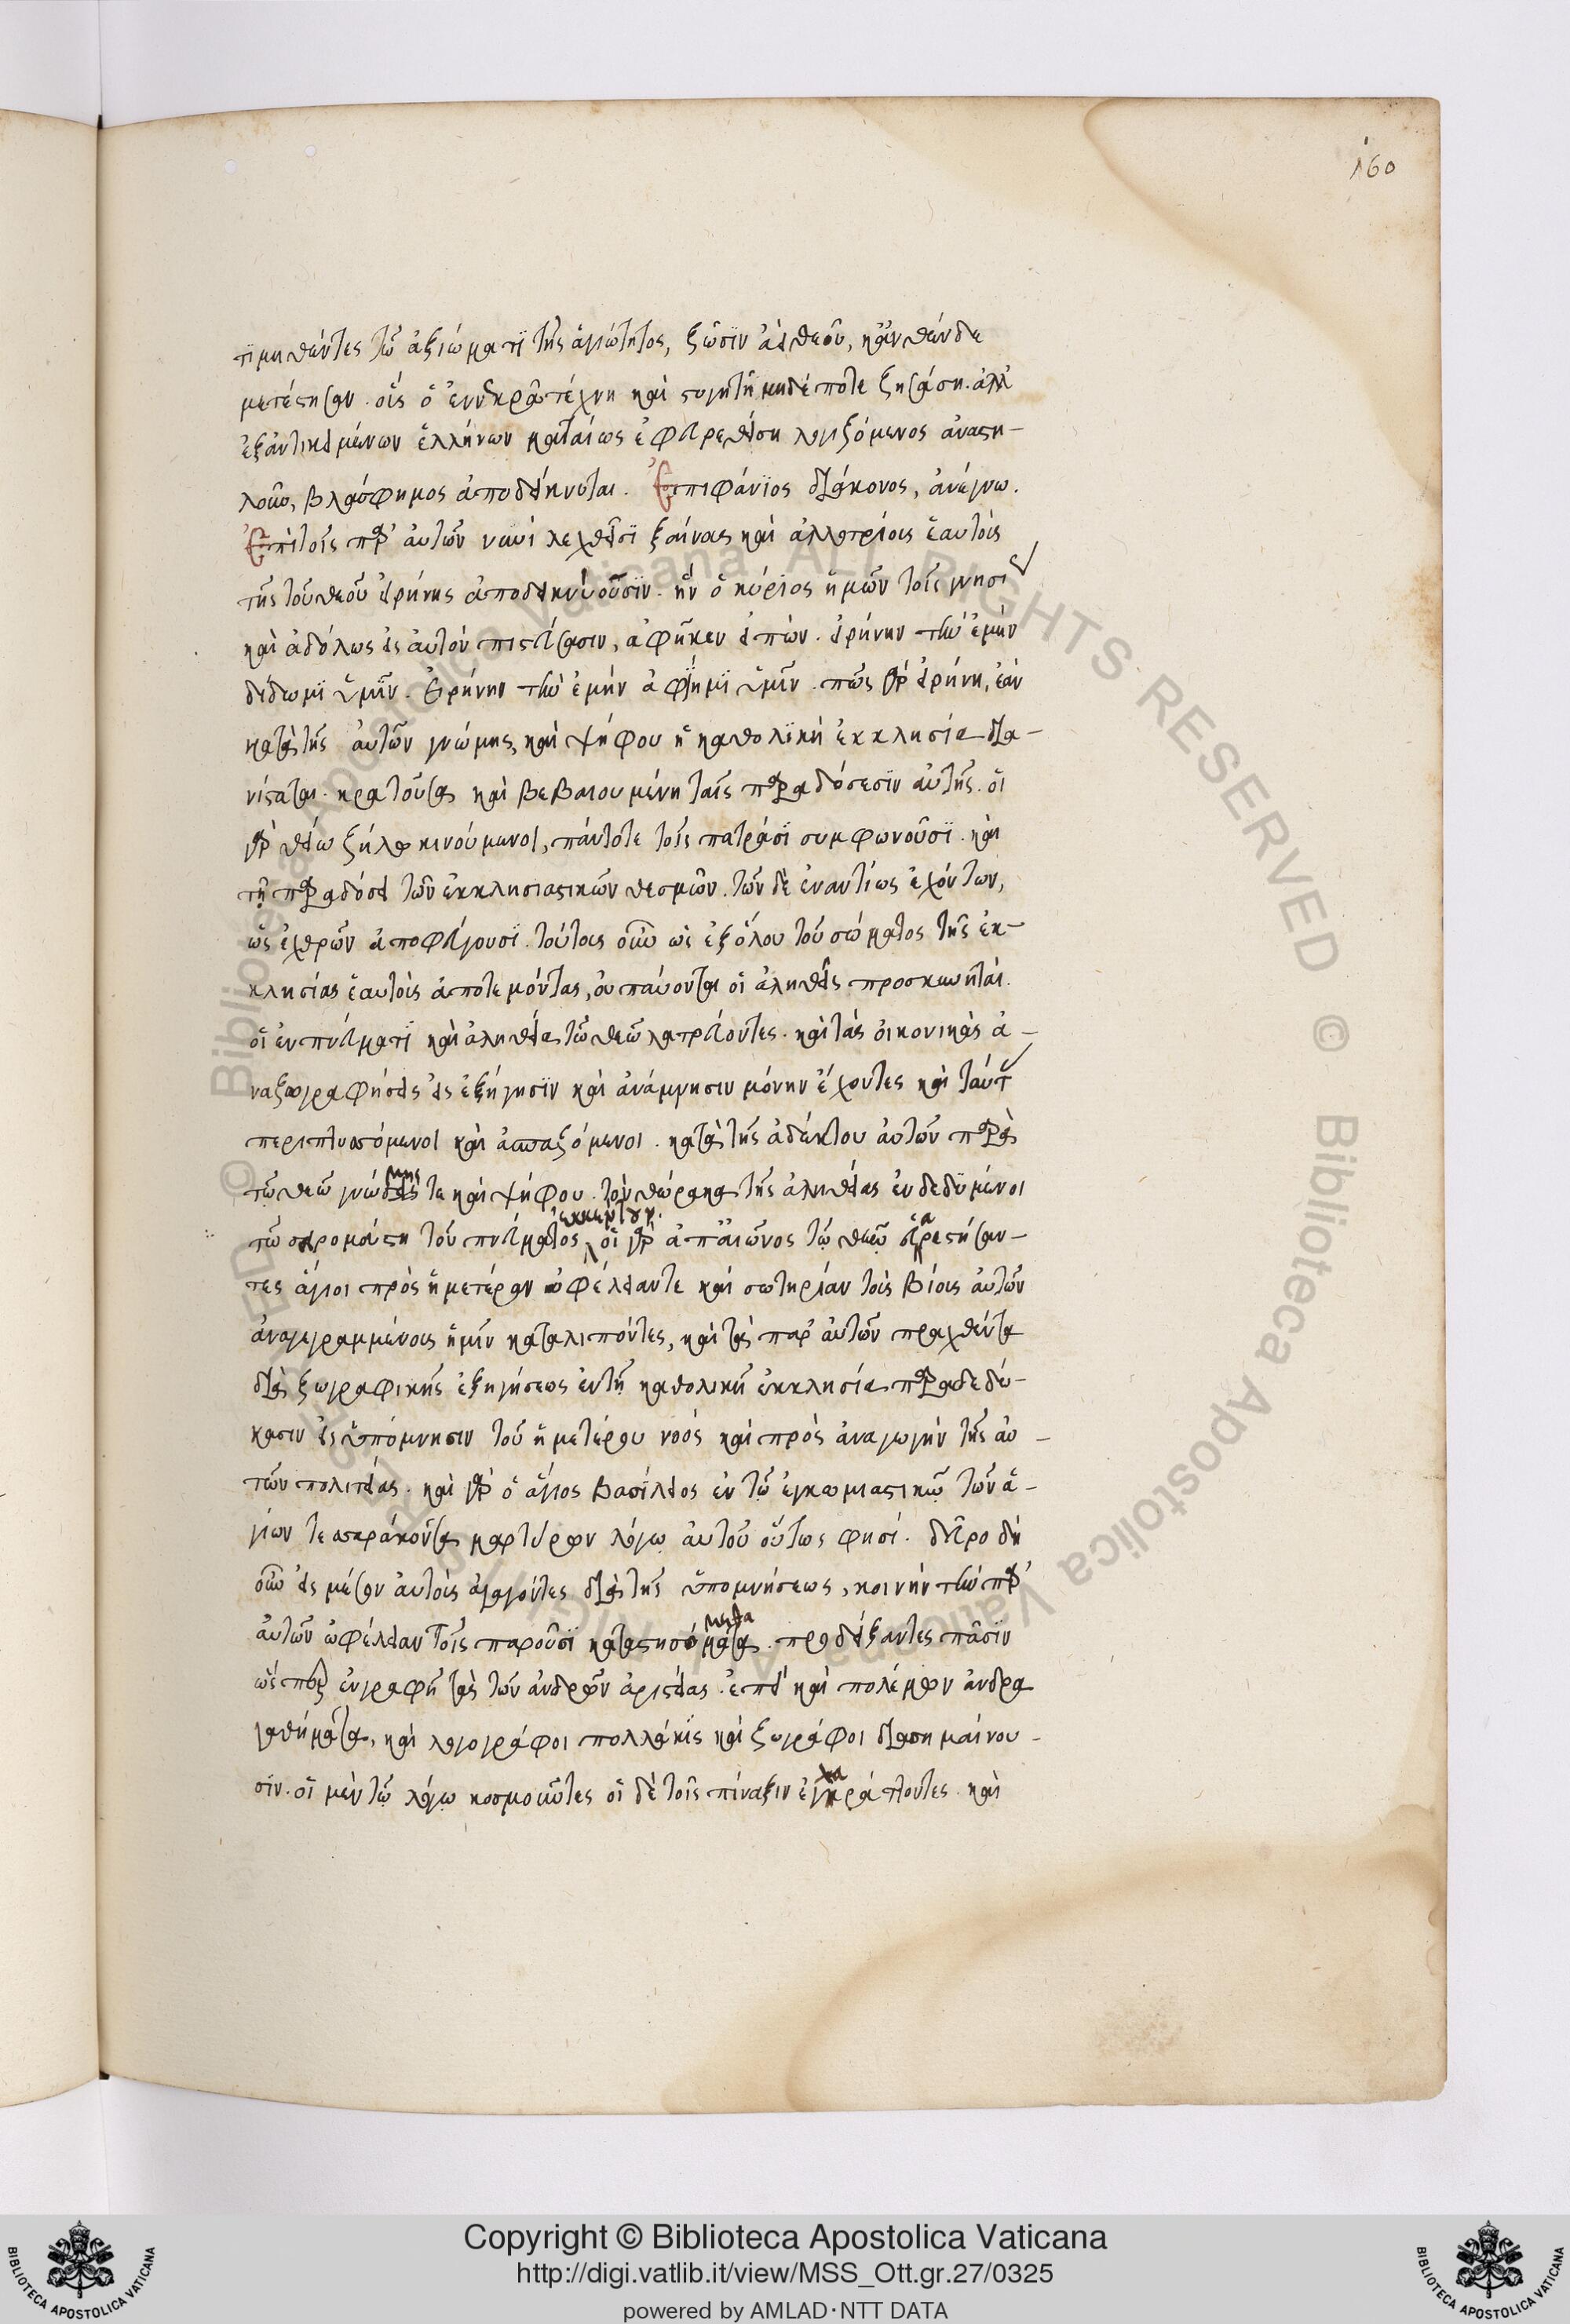 160
τϊμηθέντες τῶ ἀξιώματϊ τῆς ἁγιότητος, ζῶσϊν ἀεὶ θεῶ, κἂν θένδε
μετέστησαν. οἷς ὁ ἐν νεκρᾶ τέχνη καὶ στυγητῆ μηδέποτε ζησάση. ἀλλ'
ἐξ ἀντικειμένων ἑλλήνων ματαίως ἐφευρεθείση λογιζόμενος ἀναστη-
λοῦν, βλάσφημος ἀποδείκνυται. Ἐπιφάνϊος διάκονος, ἀνέγνω.
Ἐπὶ τοῖς παρ' αὐτῶν νυνὶ λεχθεῖσϊ ξένους καὶ ἀλλοτρίους ἑαυτοὺς
τῆς τοῦ θεοῦ εἰρήνης ἀποδεικνύουσϊν. ἣν ὁ κύρϊος ἡμῶν τοῖς γνησί
καὶ ἀδόλως εἰς αὐτὸν πιστεύσασιν, ἀφῆκεν εἰπών. εἰρήνην τὴν ἐμὴν
δίδωμϊ ὑμῖν. εἰρήνην τὴν ἐμὴν ἀφΐημϊ ὑμῖν. πῶς γὰρ εἰρήνη, ἐὰν
κατὰ τῆς αὐτῶν γνώμης, καὶ ψήφου ἡ καθολϊκὴ ἐκκλησία δια-
νίσταται. κρατοῦσα καὶ βεβαιουμένη ταῖς παραδόσεσϊν αὐτῆς. οἱ
γὰρ θείω ζήλω κινούμενοι, πάντοτε τοῖς πατράσϊ συμφωνοῦσϊ. καὶ
τῆ παραδόσει τῶν ἐκκλησιαστικῶν θεσμῶν. τῶν δὲ ἐναντίως ἐχόντων,
ὡς ἐχθρῶν ἀποφεύγουσϊ. τούτους οὖν ὡς ἐξ ὅλου τοῦ σώματος τῆς ἐκ-
κλησίας ἑαυτοὺς ἀποτεμόντας, οὐ παύονται οἱ ἀληθεῖς προσκυνηταὶ.
οἱ ἐν πνεύματϊ καὶ ἀληθεία τῶ θεῶ λατρεύοντες. καὶ τὰς εἰκονικὰς ἀ-
ναζωγραφήσεις εἰς ἐξήγησϊν καὶ ἀνάμνησιν μόνην ἔχοντες καὶ ταύτ
περιπτυσσόμενοι καὶ ἀσπαζόμενοι. κατὰ τῆς ἀδέκτου αὐτῶν παρὰ
τῶ θεῶ γνώμης τε καὶ ψήφου. τὸν θώρακα τῆς ἀληθείας ἐνδεδυμένοι
τῶ σειρομάστη τοῦ πνεύματος οἱ γὰρ ἀπ' αἰῶνος τῶ θεῶ εὐαρεστήσαν-
τες ἅγιοι πρὸς ἡμετέραν ὠφέλειαν τε καὶ σωτηρίαν τοὺς βίους αὐτῶν
ἀναγεγραμμένους ἡμῖν καταλιπόντες, καὶ τὰ παρ' αὐτῶν πραχθέντα
διὰ ζωγραφικῆς ἐξηγήσεως ἐν τῆ καθολικῆ ἐκκλησία παραδεδώ-
κασιν εἰς ὑπόμνησιν τοῦ ἡμετέρου νοός καὶ πρὸς ἀναγωγὴν τῆς αὐ-
τῶν πολιτείας. καὶ γὰρ ὁ ἅγιος Βασίλειος ἐν τῶ ἐγκωμιαστικῶ τῶν ἁ-
γίων τεσσαράκοντα μαρτύρων λόγω αὐτοῦ οὕτως φησί. δεῦρο δὴ
οὖν εἰς μέσον αὐτοὺς ἀγαγόντες διὰ τῆς ὑπομνήσεως, κοινὴν τὴν παρ'
αὐτῶν ὠφέλειαν τοῖς παροῦσϊ καταστησόμεθα. προδείξαντες πᾶσϊν
ὥσπερ ἐν γραφῆ τὰς τῶν ἀνδρῶν ἀριστείας. ἐπεὶ καὶ πολέμων ἀνδρα
γαθήματα, καὶ λογογράφοι πολλάκϊς καὶ ζωγράφοι διασημαίνου-
σϊν. οἱ μὲν τῶ λόγω κοσμοῦντες οἱ δὲ τοῖς πίναξιν ἐγχαράττοντες. καὶ
© Biblioteca Apostolica Vaticana ALL RIGHTS RESERVED
Copyright © Biblioteca Apostolica Vaticana
http://digi.vatlib.it/view/MSS_Ott.gr.27/0325
powered by AMLAD·NTT DATA
BIBLIOTECA APOSTOLICA VATICANA
BIBLIOTECA APOSTOLICA VATICANA